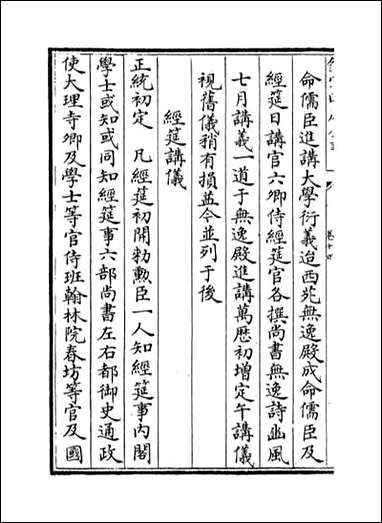 命儒臣進講大學衍義迨西苑無逸殿成命儒臣及
經筵日講官六卿侍經筵官各撰尚書無逸詩豳風
七月講義一道于無逸殿進講萬歷初增定午講儀
視舊儀稍有損益今並列于後
經筵講儀
正統初定 凡經筵初開勑勲臣一人知經筵事内閣
學士或知或同知經筵事六部尚書左右都御史通政
使大理寺卿及學士等官侍班翰林院春坊等官及國
卷十四